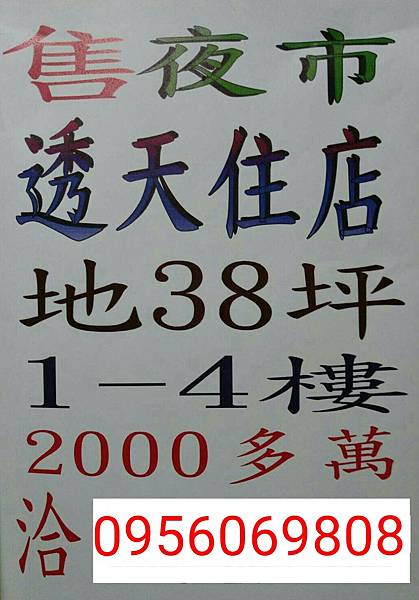 售夜市
透天住店
地38坪
1-4樓
2000多萬
洽0956069808